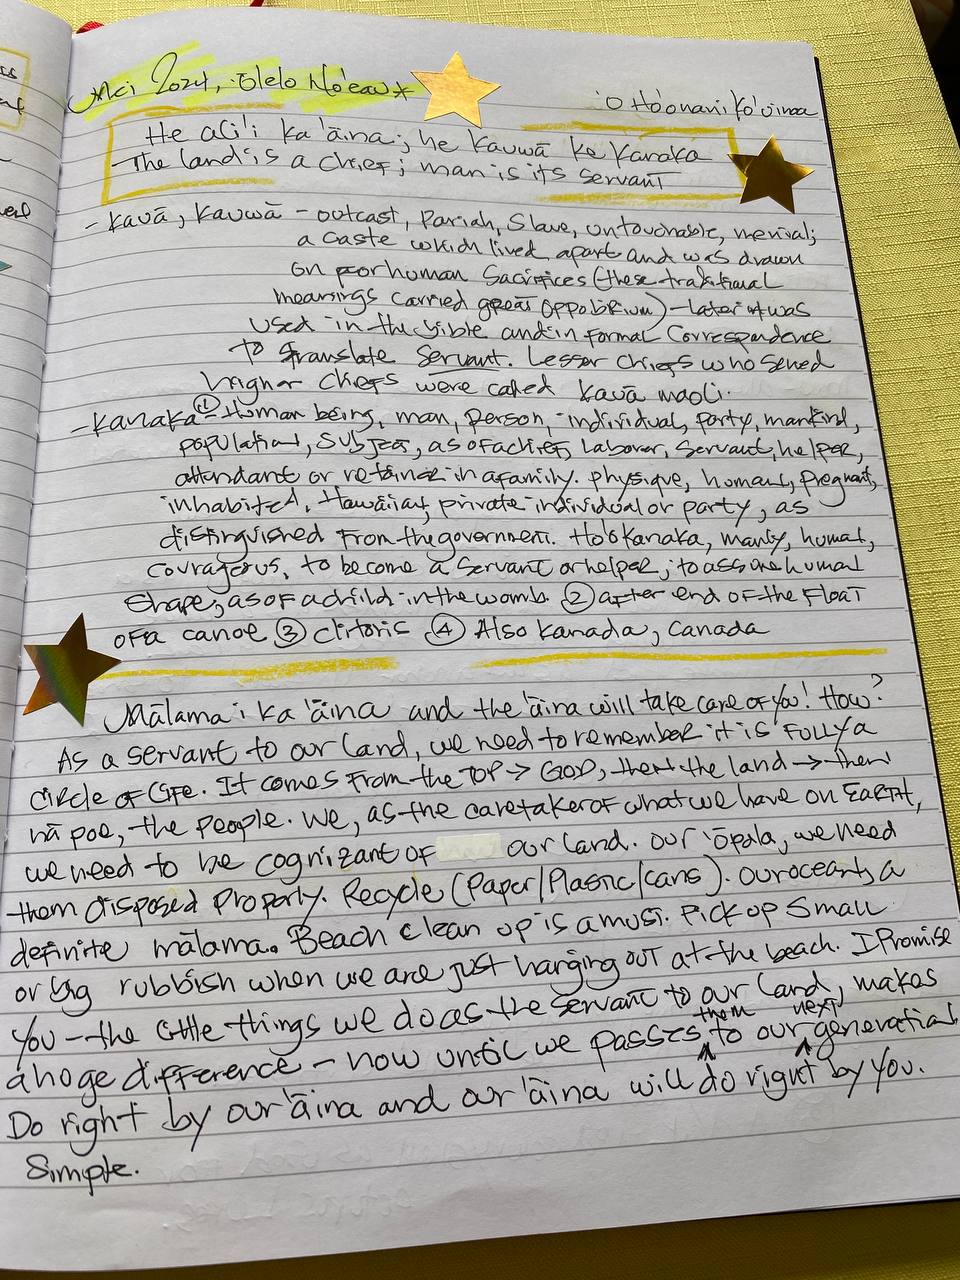 Mei 2024, ʻŌlelo Noʻeau*
ʻO Hoʻonani Koʻu inoa
He aliʻi ka ʻāina; he kauwā ke kanaka
The land is a chief; man is its servant
- Kauā, Kauwā - outcast, Pariah, Slave, untouchable, menial;
a caste which lived apart and was drawn
on for human Sacrifices (these traditional
meanings carried great oppobrium) - later it was
used in the bible and in formal Correspondence
to translate Servant. Lesser Chiefs who served
higher chiefs were called Kauā maoli.
- Kanaka ① - Human being, man, person, individual, party, mankind,
population, subject, as of a chief, Laborer, Servant, helper,
attendant or retainer in a family. physique, human, pregnant,
inhabited, Hawaiian, private individual or party, as
distinguished from the government. Hoʻokanaka, manly, human,
courageous, to become a servant or helper; to assume human
shape, as of a child in the womb ② after end of the float
of a canoe ③ clitoris ④ Also Kanada, Canada
Mālama i ka ʻāina and the ʻāina will take care of you! How?
As a servant to our land, we need to remember it is FULLY a
circle of life. It comes from the TOP → GOD, then the land → then
nā poe, the people. We, as the caretaker of what we have on EARTH,
we need to be cognizant of our land. Our ʻōpala, we need
them disposed properly. Recycle (Paper/Plastic/cans). Our oceans, a
definite mālama. Beach clean up is a must. Pick up small
or big rubbish when we are just hanging out at the beach. I Promise
you - the little things we do as the servant to our land, makes
a huge difference - now until we passes them to our next generation.
Do right by our ʻāina and our ʻāina will do right by you.
Simple.